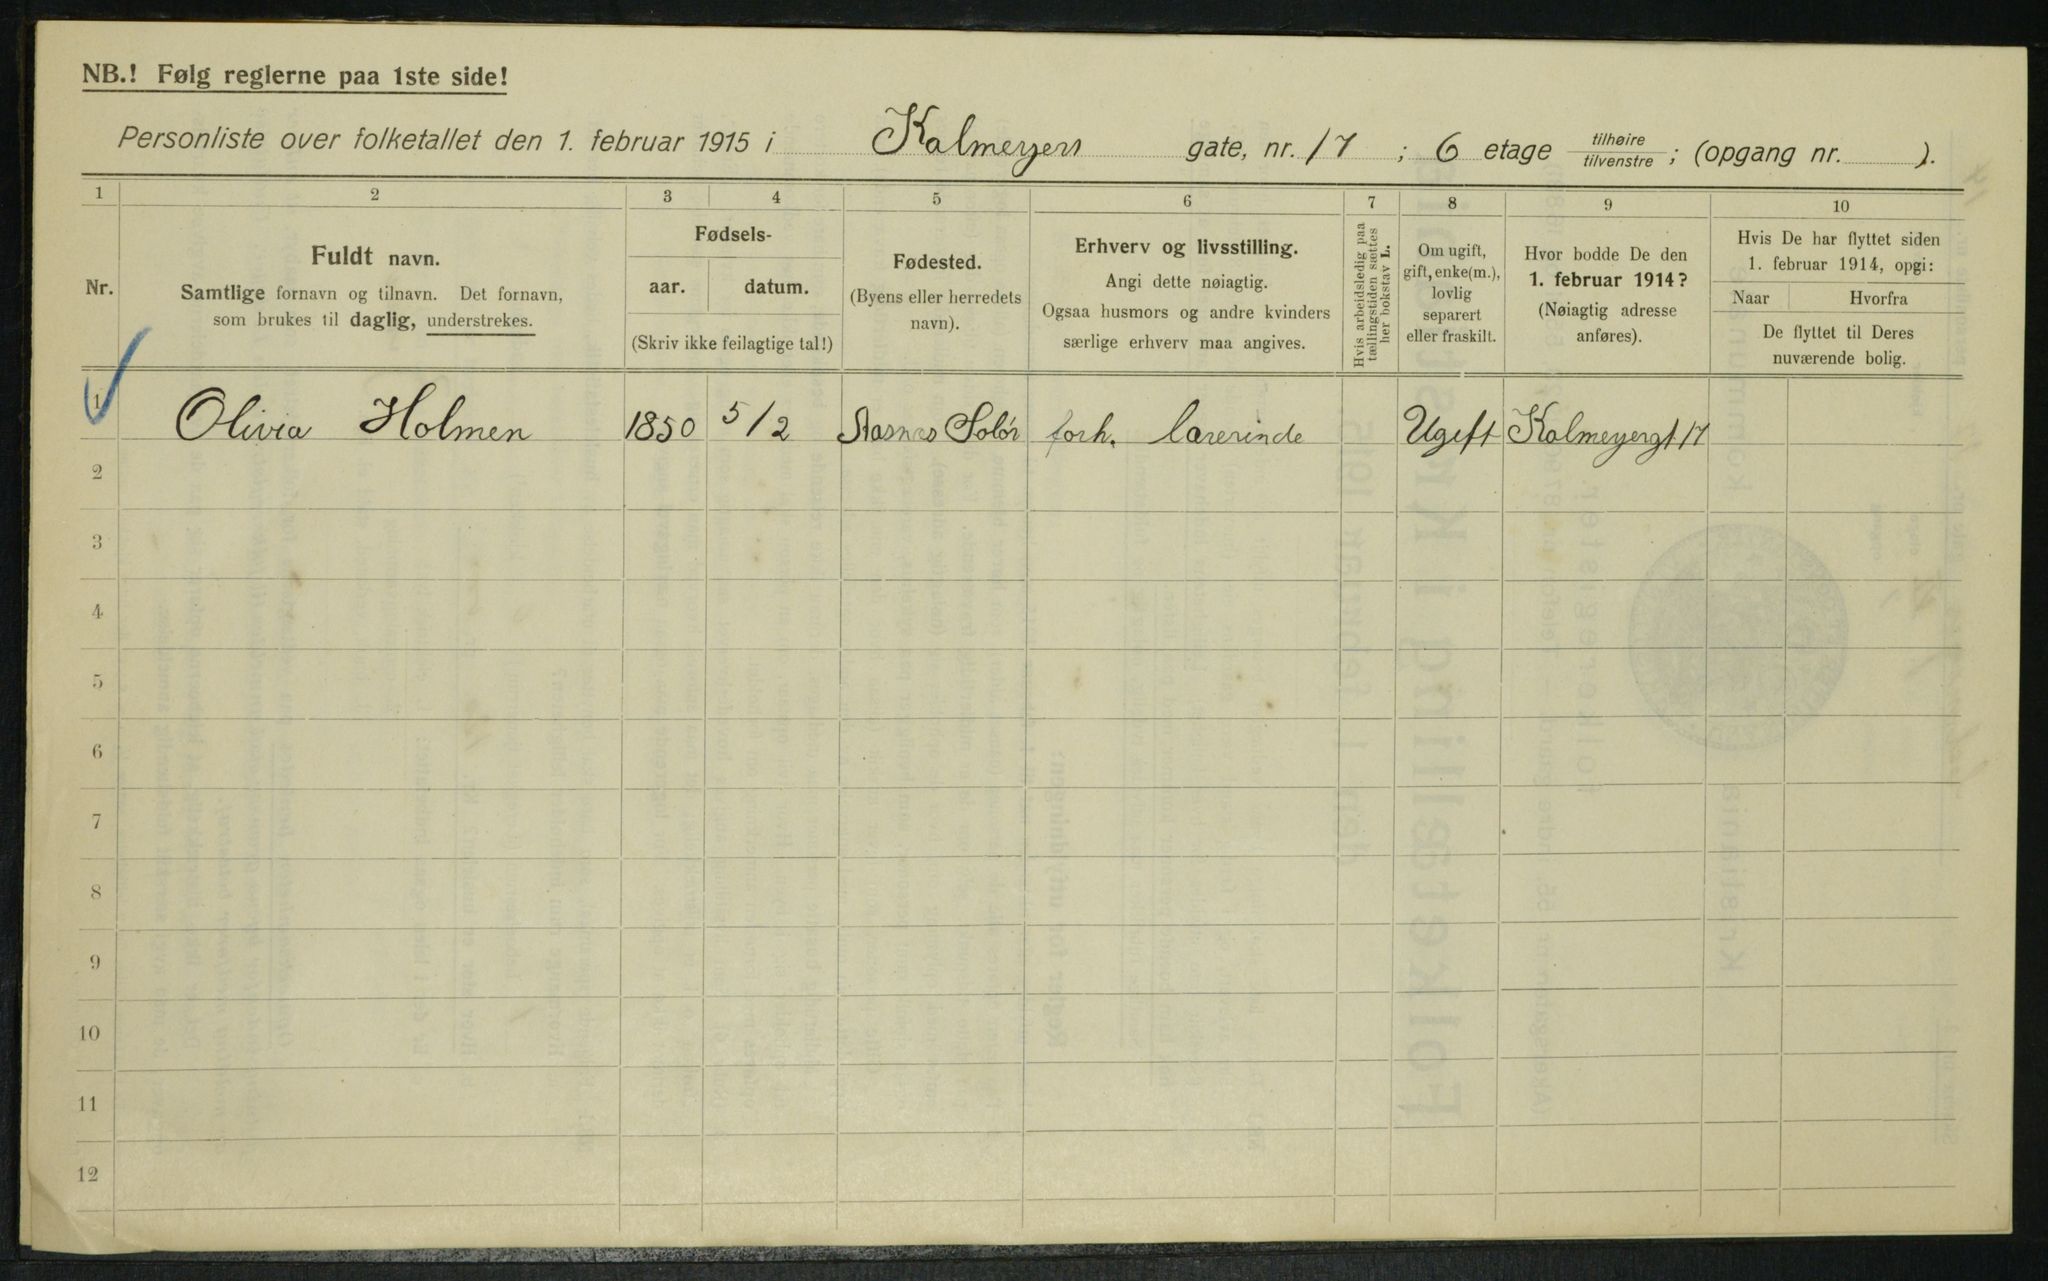 NB.! Følg reglerne paa 1ste side!
Personliste over folketallet den 1. februar 1915 i Kalmeyers gate, nr. 17 ; 6 etage tilhøire tilvenstre ; (opgang nr. ).
1 2 3 4 5 6 7 8 9 10
Nr.
Fuldt navn.
Samtlige fornavn og tilnavn. Det fornavn,
som brukes til daglig, understrekes.
Fødsels-
aar. datum.
(Skriv ikke feilagtige tal!)
Fødested.
(Byens eller herredets
navn).
Erhverv og livsstilling.
Angi dette nøiagtig.
Ogsaa husmors og andre kvinders
særlige erhverv maa angives.
Hvis arbeidsledig paa
tællingstiden sættes
her bokstav L.
Om ugift,
gift, enke(m.),
lovlig
separert
eller fraskilt.
Hvor bodde De den
1. februar 1914?
(Nøiagtig adresse
anføres).
Hvis De har flyttet siden
1. februar 1914, opgi:
Naar Hvorfra
De flyttet til Deres
nuværende bolig.
1 Olivia Holmen 1850 5/2 Aasnes Solör forh. lærerinde Ugift Kalmeyergt 17
2
3
4
5
6
7
8
9
10
11
12